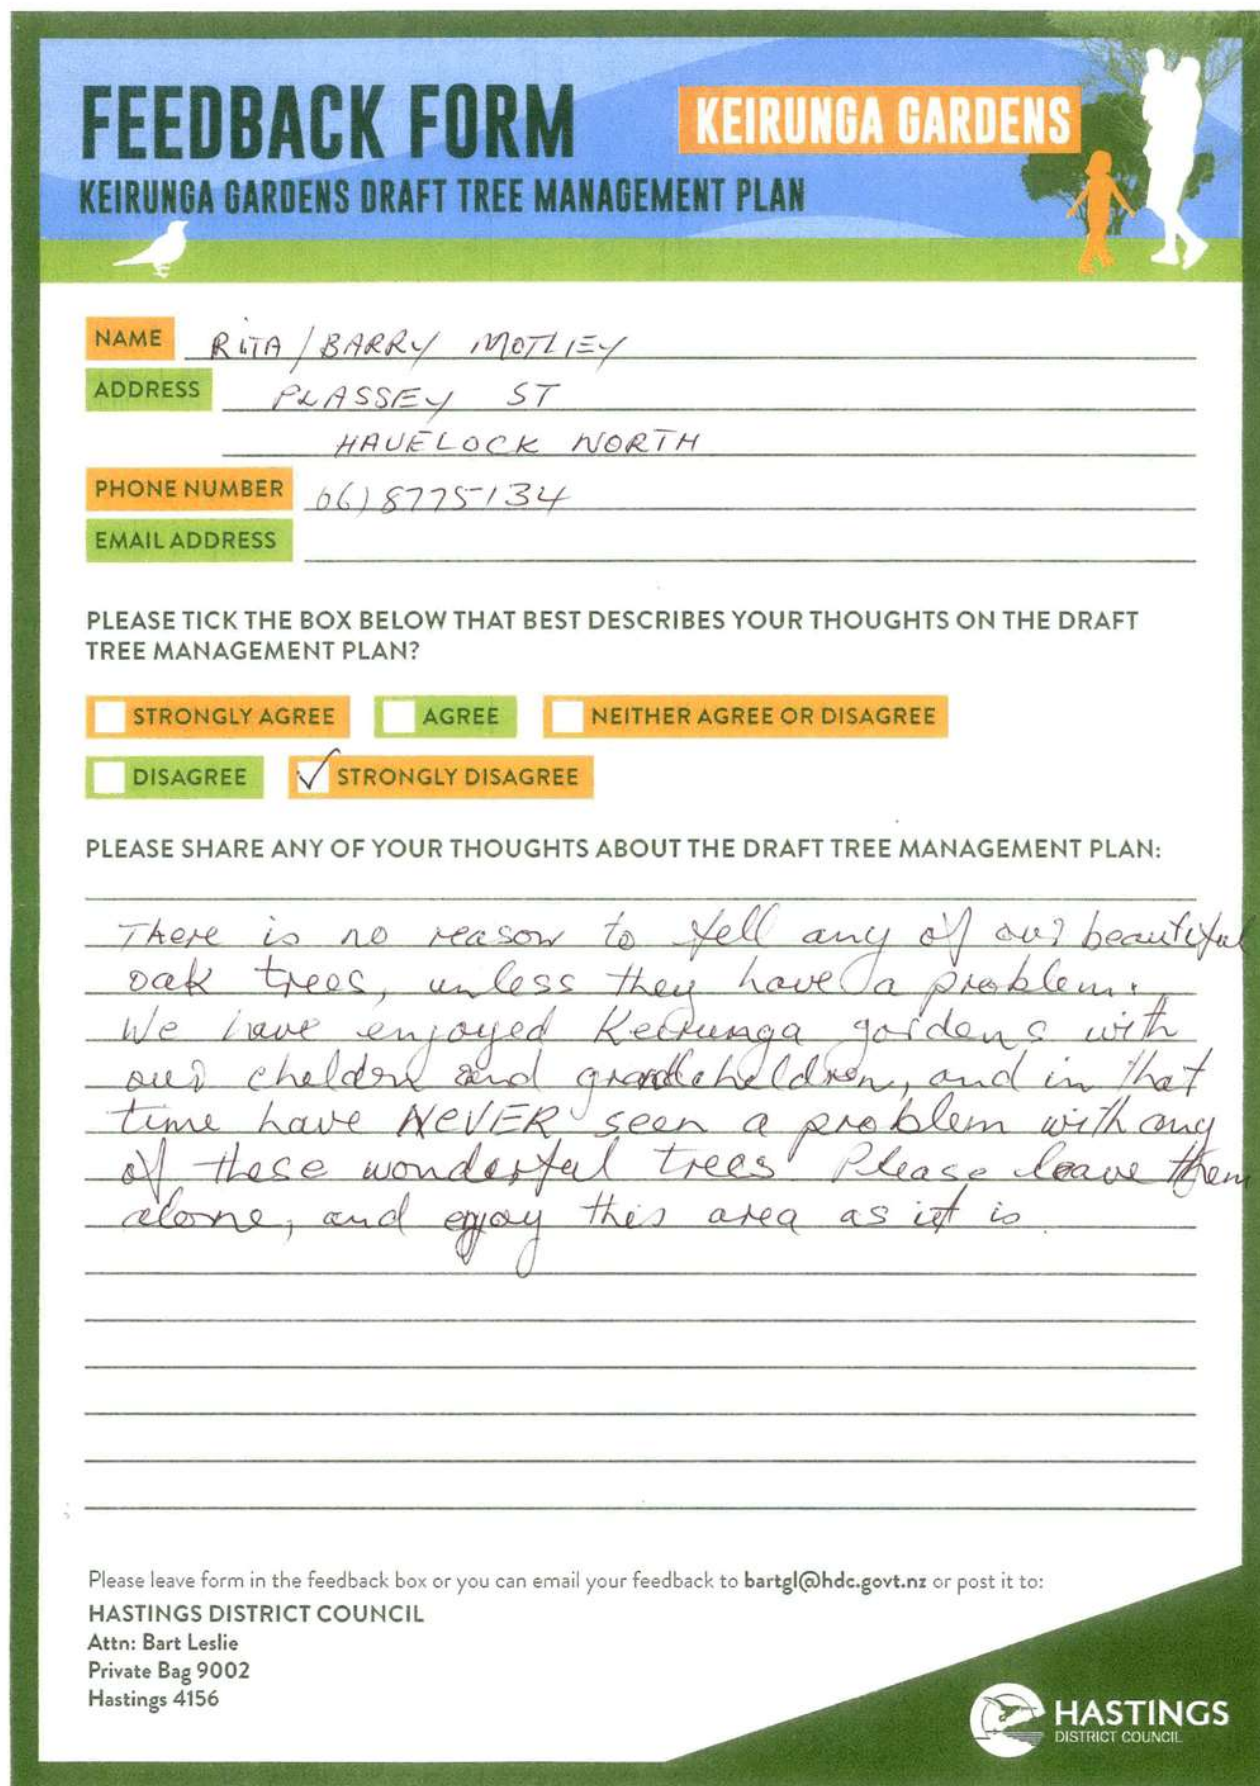 FEEDBACK FORM
KEIRUNGA GARDENS
KEIRUNGA GARDENS DRAFT TREE MANAGEMENT PLAN
NAME RITA / BARRY MOTLEY
ADDRESS PLASSEY ST
HAVELOCK NORTH
PHONE NUMBER 06) 8775134
EMAIL ADDRESS
PLEASE TICK THE BOX BELOW THAT BEST DESCRIBES YOUR THOUGHTS ON THE DRAFT
TREE MANAGEMENT PLAN?
STRONGLY AGREE AGREE NEITHER AGREE OR DISAGREE
DISAGREE ✓ STRONGLY DISAGREE
PLEASE SHARE ANY OF YOUR THOUGHTS ABOUT THE DRAFT TREE MANAGEMENT PLAN:
There is no reason to fell any of our beautiful
oak trees, unless they have a problem.
We have enjoyed Keirunga gardens with
our children and grandchildren, and in that
time have NEVER seen a problem with any
of these wonderful trees Please leave them
alone, and enjoy this area as it is.
Please leave form in the feedback box or you can email your feedback to bartgl@hdc.govt.nz or post it to:
HASTINGS DISTRICT COUNCIL
Attn: Bart Leslie
Private Bag 9002
Hastings 4156
HASTINGS
DISTRICT COUNCIL